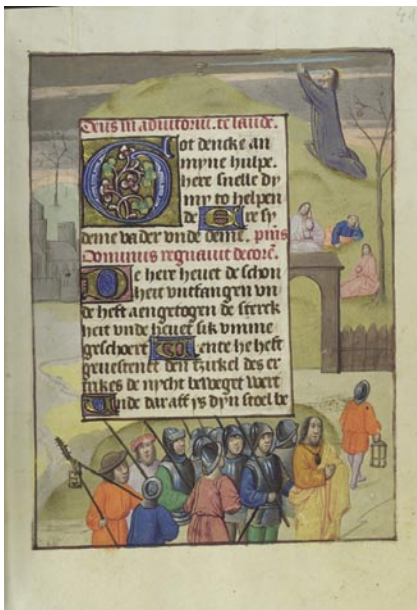 Deus in adiutoriu. te laude.
Got dencke an
myne hulpe.
here snelle dy
my to helpen
de Ere sy
deme vader vnde deme. pſus
Dominus regnauit decorē.
De here heuet de schon
heit vntfangen vn
de heft aengetogen de sterck
heit vnde heuet sik vmme
geschoert Wente he heft
geuestenet den tzirkel des er
trikes de nycht beweget wert
Vnde dar aff ys dyn stoel be